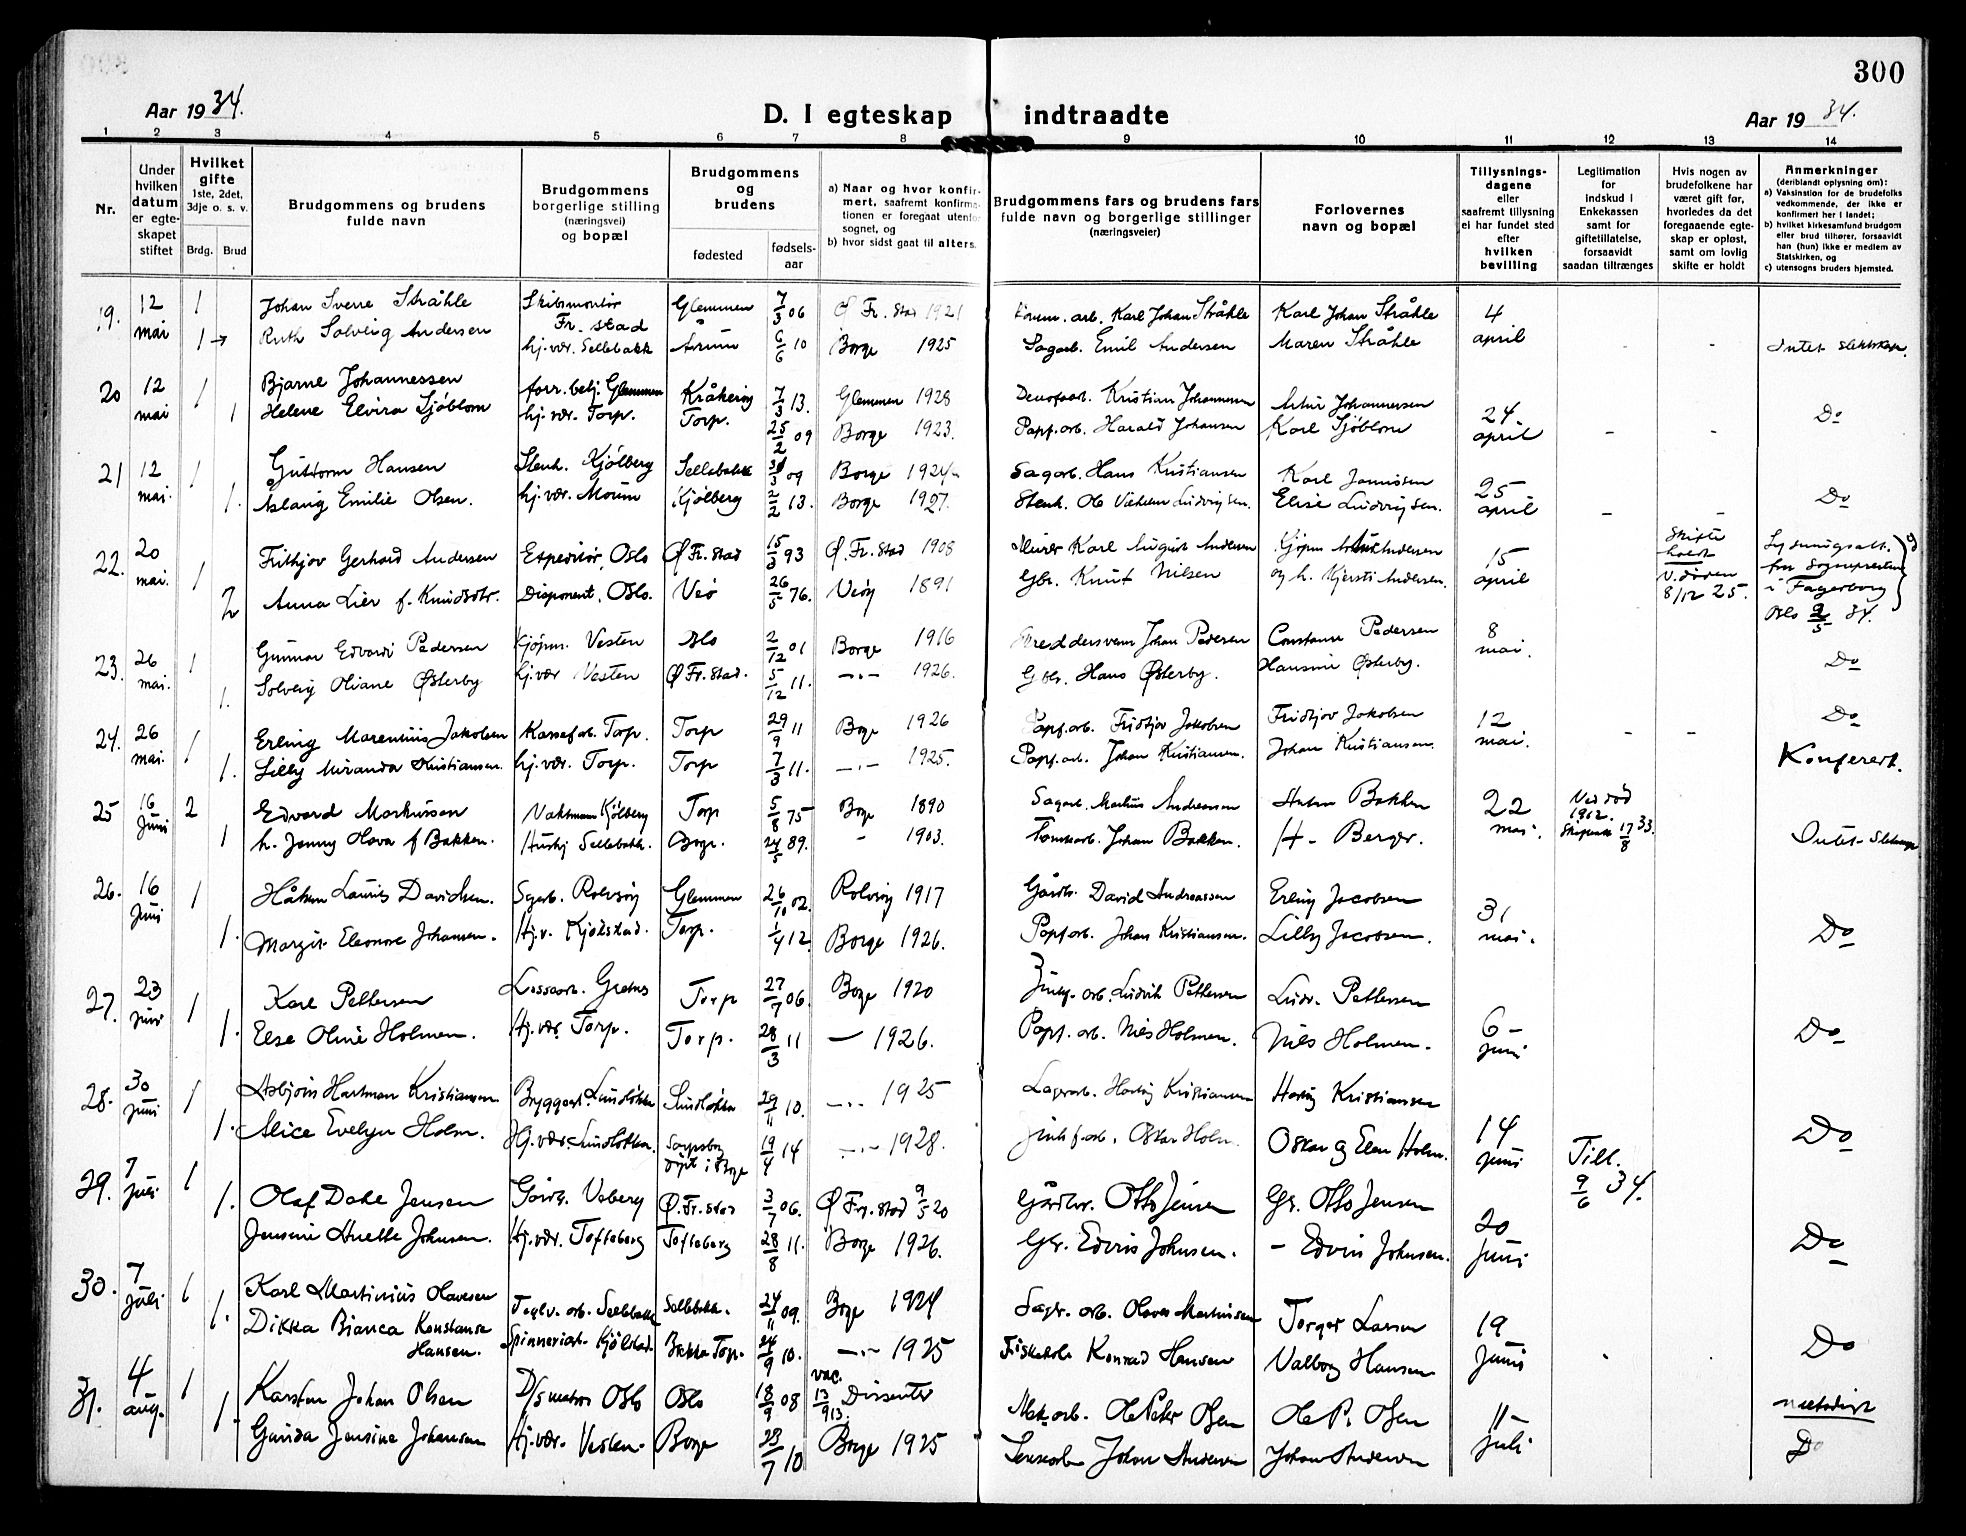 300
Aar 1934.
D. I egteskap indtraadte
Aar 1934.
1 2 3 4 5 6 7 8 9 10 11 12 13 14
Nr.
Under hvilken datum er egteskapet stiftet
Hvilket gifte 1ste, 2det, 3dje o. s. v.
Brdg. Brud
Brudgommens og brudens fulde navn
Brudgommens borgerlige stilling (næringsvei) og bopæl
Brudgommens og brudens
fødested
fødselsaar
a) Naar og hvor konfirmert, saafremt konfirmationen er foregaat utenfor sognet, og
b) hvor sidst gaat til alters.
Brudgommens fars og brudens fars fulde navn og borgerlige stillinger (næringsveier)
Forlovernes navn og bopæl
Tillysningsdagene eller saafremt tillysning ei har fundet sted efter hvilken bevilling
Legitimation for indskud i Enkekassen samt for giftetillatelse, forsaavidt saadan tiltrænges
Hvis nogen av brudefolkene har været gift før, hvorledes da det foregaaende egteskap er opløst, samt om lovlig skifte er holdt
Anmerkninger (deriblandt oplysning om):
a) Vaksinstion for de brudefolks vedkommende, der ikke er konfirmert her i landet;
b) hvilket kirkesamfund brudgom eller brud tilhører, forsaavidt han (hun) ikke er medlem av Statskirken, og
c) utensogns bruders hjemsted.
19. 12 mai 1 Johan Sverre Stråhle Skibsmontør Fr. stad Glemmen 7/3 06 Ø Fr. Stad 1921 Karl Johan Stråhle Karl Johan Stråhle 4 april
1 Ruth Solveig Andersen hj. vær. Sellebakk Årum 6/6 10 Borge 1925 Sagarb. Emil Andersen Maren Stråhle - - Intet slektskap.
20 12 mai 1 Bjarne Johannessen forr. betj. Glemmen Kråkerøy 7/3 13. Glemmen 1928 Kristian Johannessen Artur Johannessen 24 april
1 Helene Elvira Sjöblom hj. vær. Torp. Torp. 25/2 09 Borge 1923. Papp. arb. Harald Johansen Karl Sjöblom - Do
21 12 mai. 1 Guttorm Hansen Stenh. Kjölberg Sellebakk 09 Borge 1924 Sagarb. Hans Kristiansen Karl 25 april
1. Aslaug Emilie Olsen. hj. vær. Moum Kjølberg 2/2 13. Borge 1927. Stenh. Ole Vilhelm Ludvigsen. Elise Ludvigsen. - - Do
22. 20 mai. 1 Fritjov Gerhard Andersen Expeditør, Oslo Ø Fr. Stad 15/3 93 Ø. Fr. Stad 1908 Murer Karl August Andersen 15 april Skifte holdt
2 Anna Lier f. Knudsdtr. Disponent, Oslo. Veö 26/5 76. Veöy 1891 Gbr. Knut Nilsen og h. Kjersti Andersen. V. döden 8/12 25. Lysningsatt. fra Sognepresten i Fagerborg Oslo 9/5 34.
23. 26 mai. 1 Gunnar Edvard Pedersen Kjøpm. Vesten Oslo 2/12 01 Borge 1916 Skreddersvenn Johan Pedersen Constanse Pedersen 8 mai.
1. Solveig Oliane Østerby hj. vær Vesten Ø Fr. Stad. 5/12 11. -"- 1926. Gbr. Hans Østerby. Hansine Østerby. Do
24. 26 mai. 1 Erling Marentius Jakobsen Kassefarb. Torp. Torp 29/9 11 Borge 1926 Papf. arb. Fridtjov Jakobsen Fridtjov Jakobsen 12 mai. - - Do
1. Lilly Miranda Kristiansen. hj. vær. Torp. Torp 7/3 11. -"- 1925. Papf. arb. Johan Kristiansen. Johan Kristiansen. Konferert.
25 16 Juni 2 Edvard Markussen Vaktmann Kjölberg Torp 5/8 75 Borge 1890 Sagarb. Markus Andreassen Anton Bakken 22 mai. Ved död 1912. 17/8 33.
1 h. Jenny Olava f Bakken. Hushj Sellebakk. Borge. 24/5 89. - 1903. Tomtearb. Johan Bakken. H - Berger. Intet Slektskap
26. 16 Juni 1 Håkon Laurits Davidsen. Sgarb. Rolvsöy Glemmen 26/10 02. Rolvsöy 1917 Gårdbr. David Andreassen Erling Jacobsen 31 mai.
1. Margit Eleonore Johansen. Hj. v. Kjölstad. Torp. 1/4 12 Borge 1926. Papf arb. Johan Kristiansen. Lilly Jacobsen. Do
27. 23 juni 1 Karl Pettersen Lossearb. Greåker Torp 27/7 06. Borge 1920 arb. Ludvik Pettersen Ludv. Pettersen 6 - juni
1. Else Oline Holmen. Hj. vær Torp. Torp. 28/3 11 - 1926. Papf. arb. Nils Holmen. Nils Holmen. Do
28. 30 juni 1 Asbjörn Hartman Kristiansen Bryggearb. Lundløkka Lundløkka 29/11 10. -"- 1925 Lagerarb. Hartvig Kristiansen Hartvig Kristiansen 14 juni
1. Alice Evelyn Holm. Hj. vær. Lundløkka. Sarpsborg döpt i Borge 19/4 14 -"- 1928. arb. Oskar Holm. Oskar og Elen Holm. Do
29. 7 juli 1 Olaf Dake Jensen Gårdbr. Veberg Ø. Fr. stad 3/7 06. Ø Fr. Stad 9/5 20 Gårdbr. Otto Jensen Gr. Otto Jensen 20 juni Till. 9/6 34.
1. Jensine Anette Johnsen. Hj. vær. Tofteberg Tofteberg 28/8 11. Borge 1926. Gbr. Edvin Johnsen. - Edvin Johnsen. Do
30. 7 juli 1 Karl Martinius Olavesen Teglv. arb. Sellebakk Sellebakk. 24/11 09. Borge 1924 Sagv. arb. Olaves Martinsen Torger Larsen 19 juni
1. Dikka Bianca Konstanse Hansen. Spinneriarb. Kjölstad. Bakke Torp. 24/9 10. -"- 1925 Fiskehdl. Konrad Hansen Valborg Hansen Do
31. 4 aug. 1 Karsten Johan Olsen D/s matros Oslo Oslo 18/9 08 vac. 13/9 13. Dissenter Mek. arb. Ole Peter Olsen Ole P. Olsen 11 - juli metodist
1 Gunda Jensine Johansen Hj. vær. Vesten. Borge 23/7 10 Borge 1925 Johan Andersen Johan Andersen Do